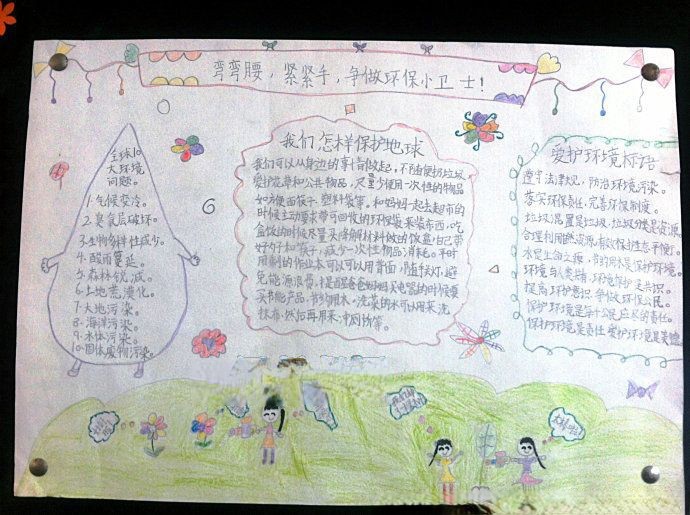 弯弯腰，紧紧手，争做环保小卫士！
全球10
大环境
问题。
1.气候变冷。
2.臭氧层破坏。
3.生物多样性减少。
4.酸雨蔓延。
5.森林锐减。
6.土地荒漠化。
7.大地污染。
8.海洋污染。
9.水体污染。
10.固体废物污染。
我们怎样保护地球
我们可以从身边的事情做起，不随便扔垃圾
爱护花草和公共物品，尽量少使用一次性的物品
如方便面筷子，塑料袋等。和妈妈一起去超市的
时候主动要求带可回收的环保袋来装东西，吃
盒饭的时候尽量买降解材料做的饭盒，自己带
好勺子和筷子，减少一次性物品消耗。平时
用剩的作业本可以可以用背面，随手关灯，避
免能源浪费，提醒爸爸妈妈买电器的时候要
买节能产品，节约用水，洗菜的水可以用来洗
抹布，然后再用来冲厕所等。
爱护环境标语
遵守法律大儿，防治环境污染。
落实环保责任，完善环保制度。
垃圾混置是垃圾，垃圾分类是资源
合理利用自然资源，有效保护生态平衡
水是生命之源，节约用水是保护环境。
环境与人类相，环境保护是共识。
提高环护意识，争做环保公民。
保护环境是每个公民应尽的责任。
保护环境是责任，爱护环境是美德